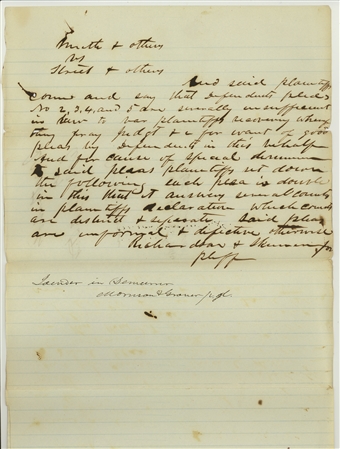 Smith & others
vs
Street & others
And said plaintiffs
come and say that Defendants pleas
No 2, 3, 4, and 5 are severally insufficient
in law to bar plaintiffs recovering wherefore
they pray judgt & c for want of good
pleas by Defendants in this behalf
And for cause of special demurrer
to said pleas plaintiffs set down
the following, each plea is double
in this that it answers several counts
in plaintiffs declaration which counts
are distinct & separate said pleas
are informal & defective otherwise
Richardson & for
plffs
Joinder in Demurrer
Morrison & Grover p. q.